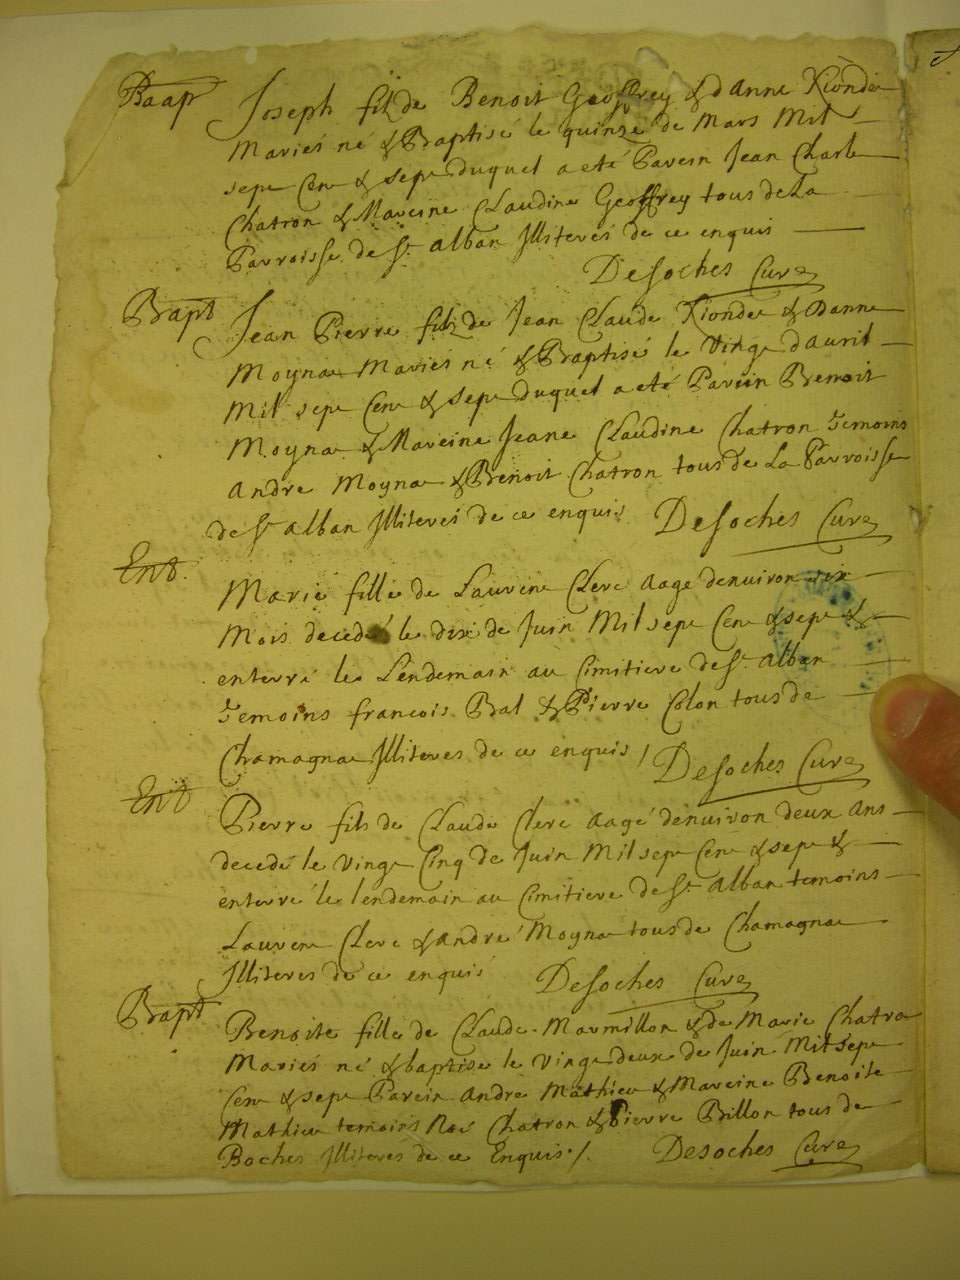 Bapt
Joseph filz de Benoit Geoffrey & d'Anne Rionder
Mariés né & Baptisé le quinze de Mars Mil
sept Cent & sept duquel a eté Parein Jean Charle
Chatron & Mareine Claudine Geoffrey tous de La
Parroisse de St alban Illiterés de ce enquis
Desoches Curé
Bapt
Jean Pierre filz de Jean Claude Rionder & Danne
Moynat Mariés né & Baptisé le Vingt d'auril
Mil sept Cent & sept duquel a eté Parein Benoit
Moynat & Mareine Jeane Claudine Chatron Temoins
Andre Moynat & Benoit Chatron tous de La Parroisse
de St alban Illiterés de ce enquis Desoches Curé
Ent.
Marie fille de Laurent Clerc aage denuiron six
Mois decedé le dix de Juin Mil sept Cent & sept &
enterré le Lendemain au Cimitiere de St alban
Temoins francois Bal & Pierre Colon tous de
Chamagnat Illiteres de ce enquis / Desoches Curé
Ent
Pierre fils de Claude Clerc aagé denuiron deux ans
decedé le vingt Cinq de Juin Mil sept Cent & sept &
enterré le lendemain au Cimitiere de St alban temoins
Laurent Clerc & andré Moynat tous de Chamagnat
Illiteres de ce enquis Desoches Curé
Bapt
Benoite fille de Claude Marmillon & de Marie Chatron
Mariés né & baptisé le vingt deux de Juin Mil sept
Cent & sept Parein André Mathieu & Mareine Benoite
Mathieu temoins Chatron & Pierre Billon tous de
Boches Illiteres de ce Enquis ./. Desoches Curé